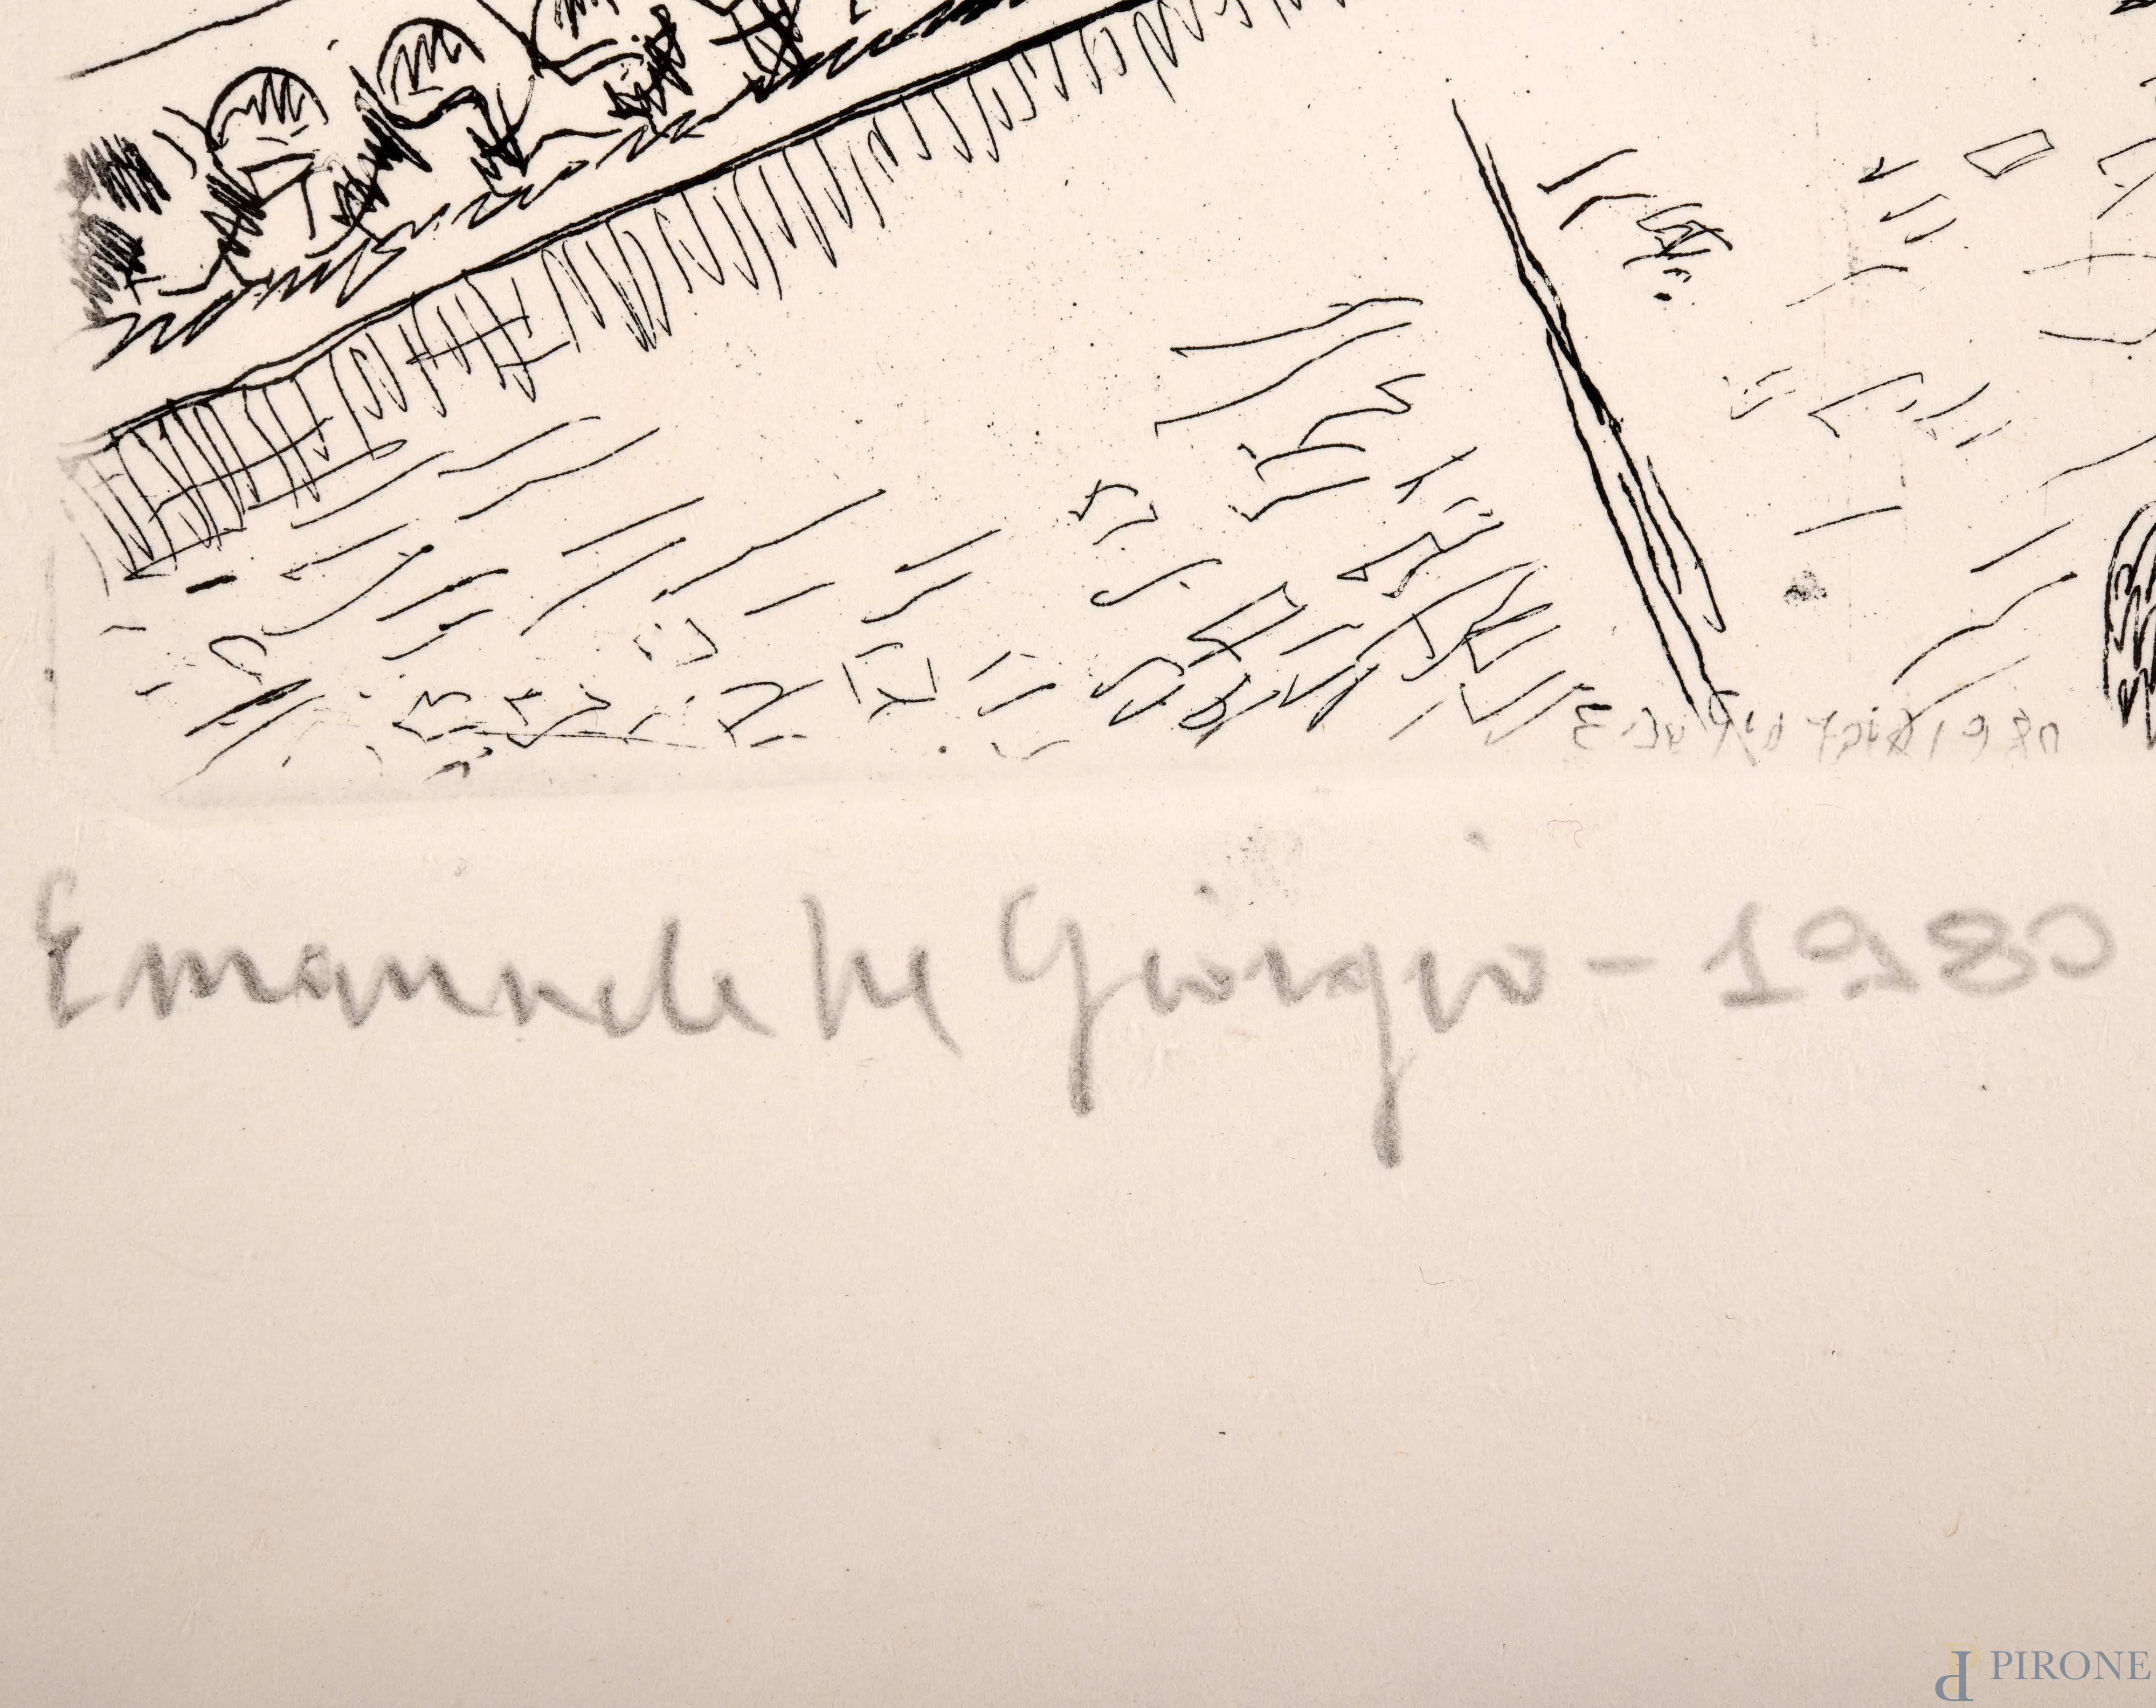 Emanuele Me Giorgio - 1980
PIRONE